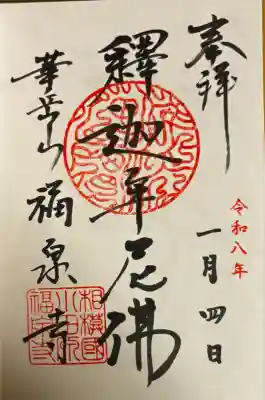 奉拝
令和八年
一月四日
釋迦牟尼佛
華岳山 福泉寺
相模國
小田原
福泉寺